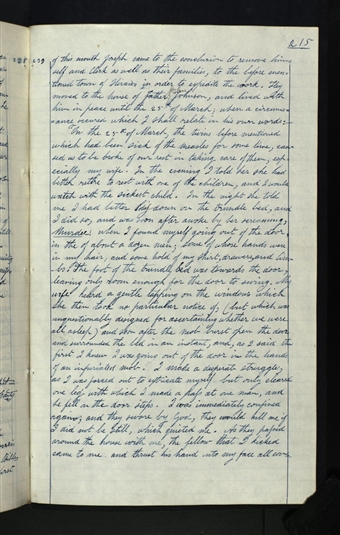 215
of this month Joseph came to the conclusion to remove him
self and Clerk as well as their families, to the before men
tioned town of Hiram in order to expedite the work. They
moved to the house of father Johnson, and lived with
him in peace until the 25th of March; when a circum-
stance occured which I shall relate in his own words:-
"On the 25th of March, the twins before mentioned
which had been sick of the measles for some time, cau-
sed us to be broke of our rest in taking care of them, esp-
ecially my wife. In the evening I told her she had
better retire to rest with one of the children, and I would
watch with the sickest child. In the night she told
me I had better lay down on the trundle bed, and
I did so, and was soon after awoke by her screaming;
Murder! when I found myself going out of the door,
in the of about a dozen men; some of whose hands were
in my hair, and some hold of my shirt, drawers, and lim
bs. The foot of the trundle bed was towards the door,
leaving only room enough for the door to swing. My
wife heard a gentle tapping on the windows which
she then took no particular notice of; (but which was
unquestionably designed for ascertaining whether we were
all asleep,) and soon after the mob burst open the door
and surrounded the bed in an instant, and, as I said the
first I knew I was going out of the door in the hands
of an infuriated mob. I made a desperate struggle,
as I was forced out to extricate myself but only cleared
one leg, with which I made a pass at one man, and
he fell on the door steps. I was immediately confined
again; and they swore by God, they would kill me if
I did not be still, which quieted me. As they passed
around the house with me, the fellow that I kicked
came to me and thrust his hand into my face all over